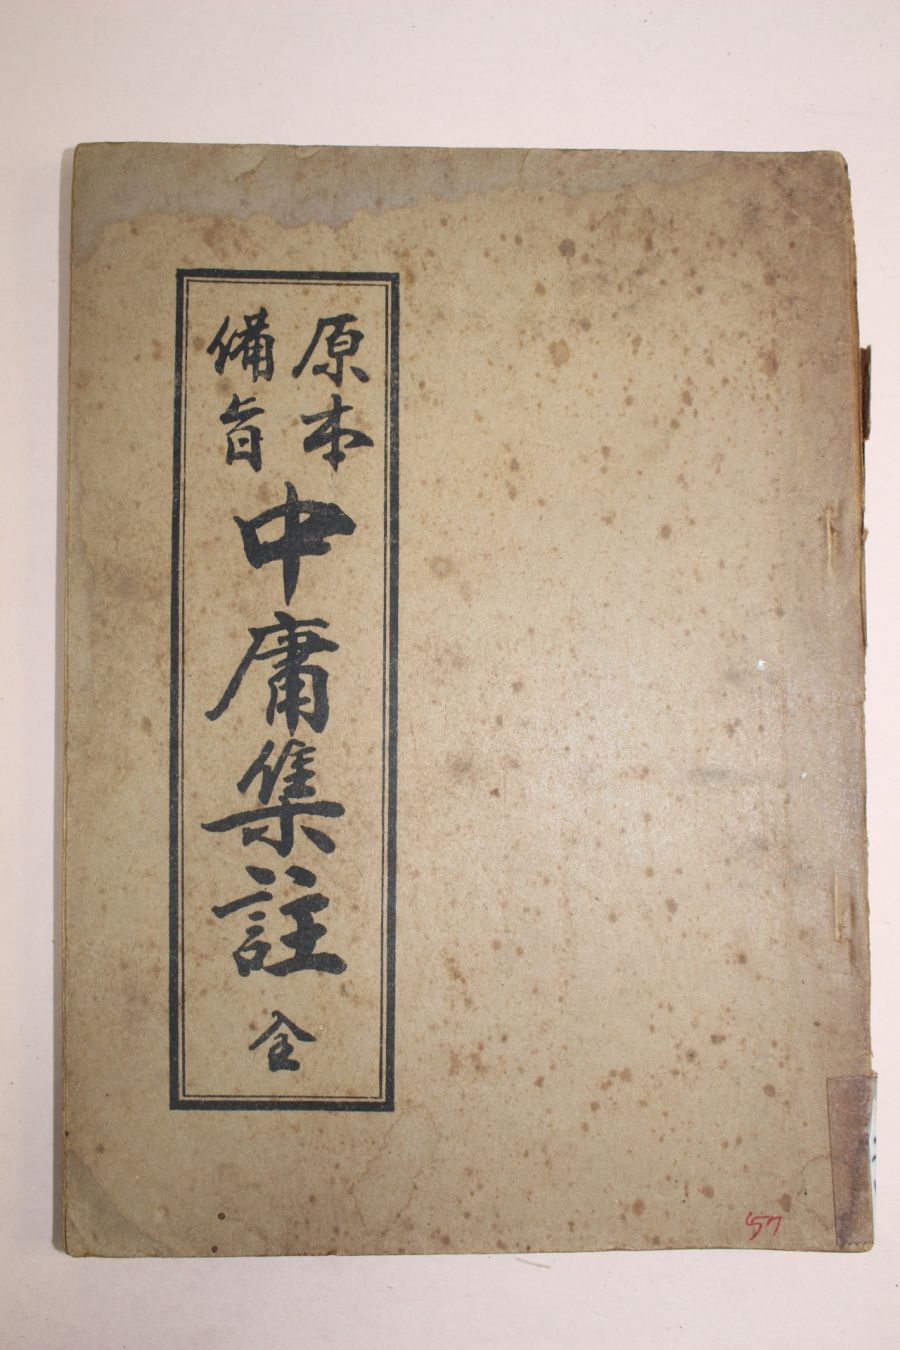 原本
備旨
中庸集註 全
57